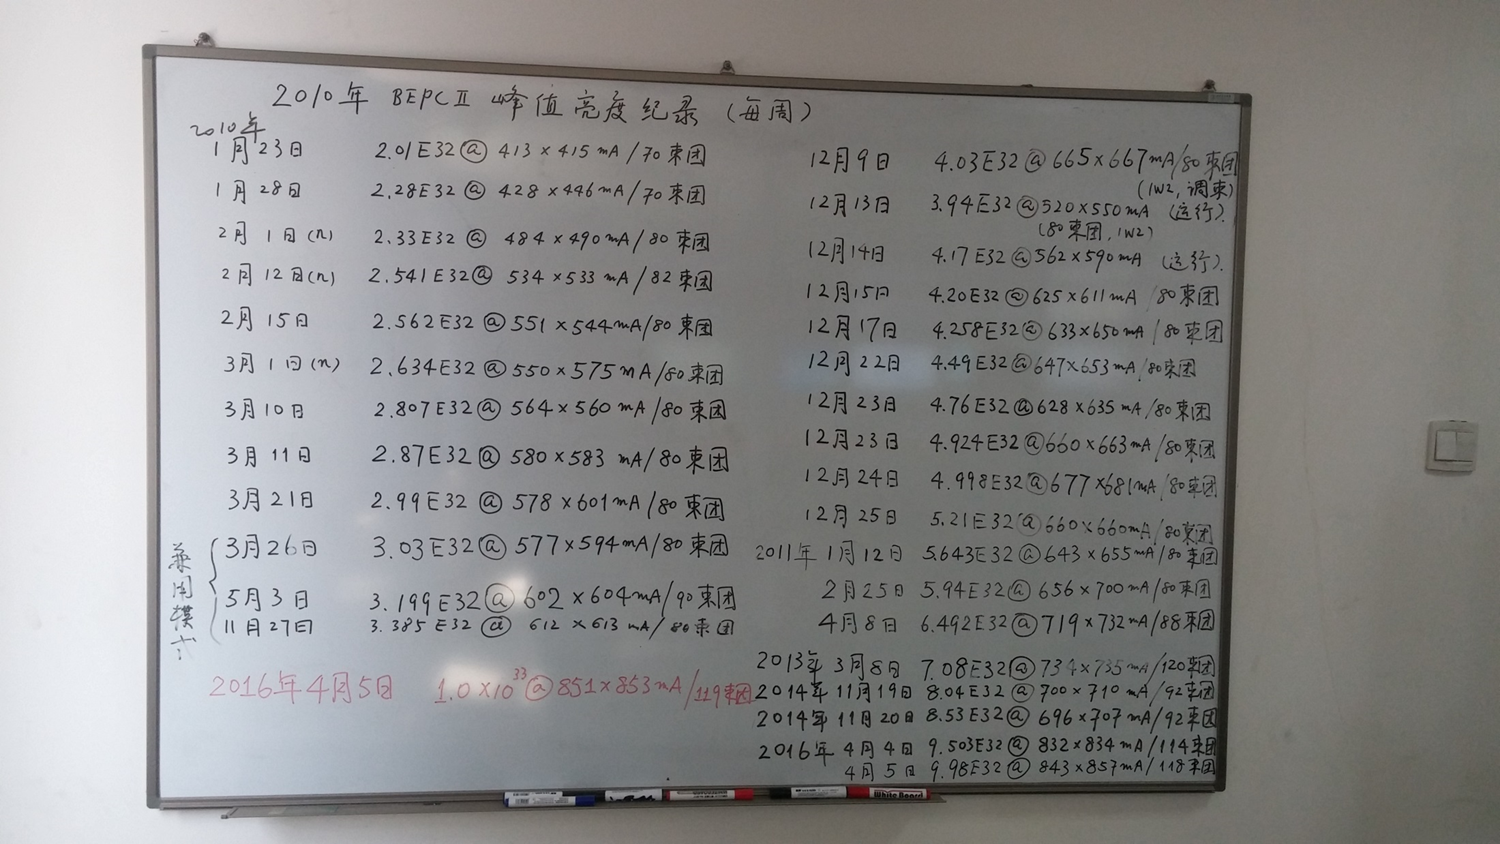 2010年 BEPCⅡ 峰值亮度纪录（每周）
2010年
1月23日 2.01E32@ 413×415mA/70束团
1月28日 2.28E32@ 428×446mA/70束团
2月1日(n) 2.33E32@ 484×490mA/80束团
2月12日(n) 2.541E32@ 534×533mA/82束团
2月15日 2.562E32@551×544mA/80束团
3月1日(n) 2.634E32@550×575mA/80束团
3月10日 2.807E32@ 564×560mA/80束团
3月11日 2.87E32@ 580×583mA/80束团
3月21日 2.99E32@ 578×601mA/80束团
兼用模式
3月26日 3.03E32@ 577×594mA/80束团
5月3日 3.199E32@ 602×604mA/90束团
11月27日 3.385E32@ 612×613mA/80束团
2016年4月5日 1.0×10³³@851×853mA/119束团
12月9日 4.03E32@665×667mA/80束团
(1W2,调束)
12月13日 3.94E32@520×550mA (运行).
(80束团,1W2)
12月14日 4.17E32@562×590mA (运行).
12月15日 4.20E32@625×611mA /80束团
12月17日 4.258E32@633×650mA /80束团
12月22日 4.49E32@647×653mA/80束团
12月23日 4.76E32@628×635mA/80束团
12月23日 4.924E32@660×663mA/80束团
12月24日 4.998E32@677×681mA/80束团
12月25日 5.21E32@660×660mA/80束团
2011年1月12日 5.643E32@643×655mA/80束团
2月25日 5.94E32@656×700mA/80束团
4月8日 6.492E32@719×732mA/88束团
2013年3月8日 7.08E32@734×735mA/120束团
2014年11月19日 8.04E32@700×710mA/92束团
2014年11月20日 8.53E32@696×707mA/92束团
2016年4月4日 9.503E32@832×834mA/114束团
4月5日 9.98E32@843×857mA/118束团
White Board